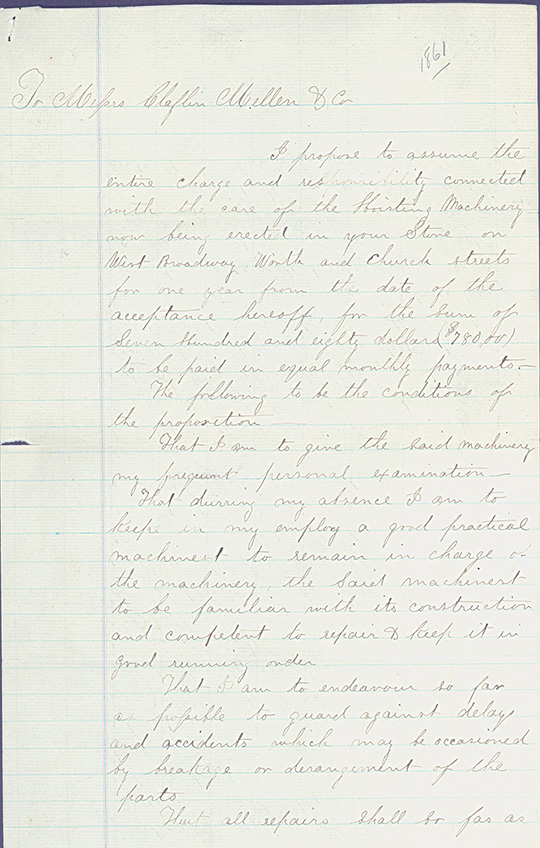 1861
To Messrs Claflin Mellen & Co
I propose to assume the
entire charge and responsibility connected
with the care of the Hoisting Machinery
now being erected in your Store on
West Broadway Worth and Church streets
for one year from the date of the
acceptance hereoff, for the sum of
Seven Hundred and eighty dollars ($780,00)
to be paid in equal monthly payments.–
The following to be the conditions of
the proposition
That I am to give the said machinery
my frequent personal examination–
That durring my absence I am to
keep in my employ a good practical
machinest to remain in charge of
the machinery, the said machinest
to be familiar with its construction
and competent to repair & keep it in
good running order
That I am to endeavour so far
as possible to guard against delays
and accidents which may be occasioned
by breakage or derangement of the
parts
That all repairs shall so far as